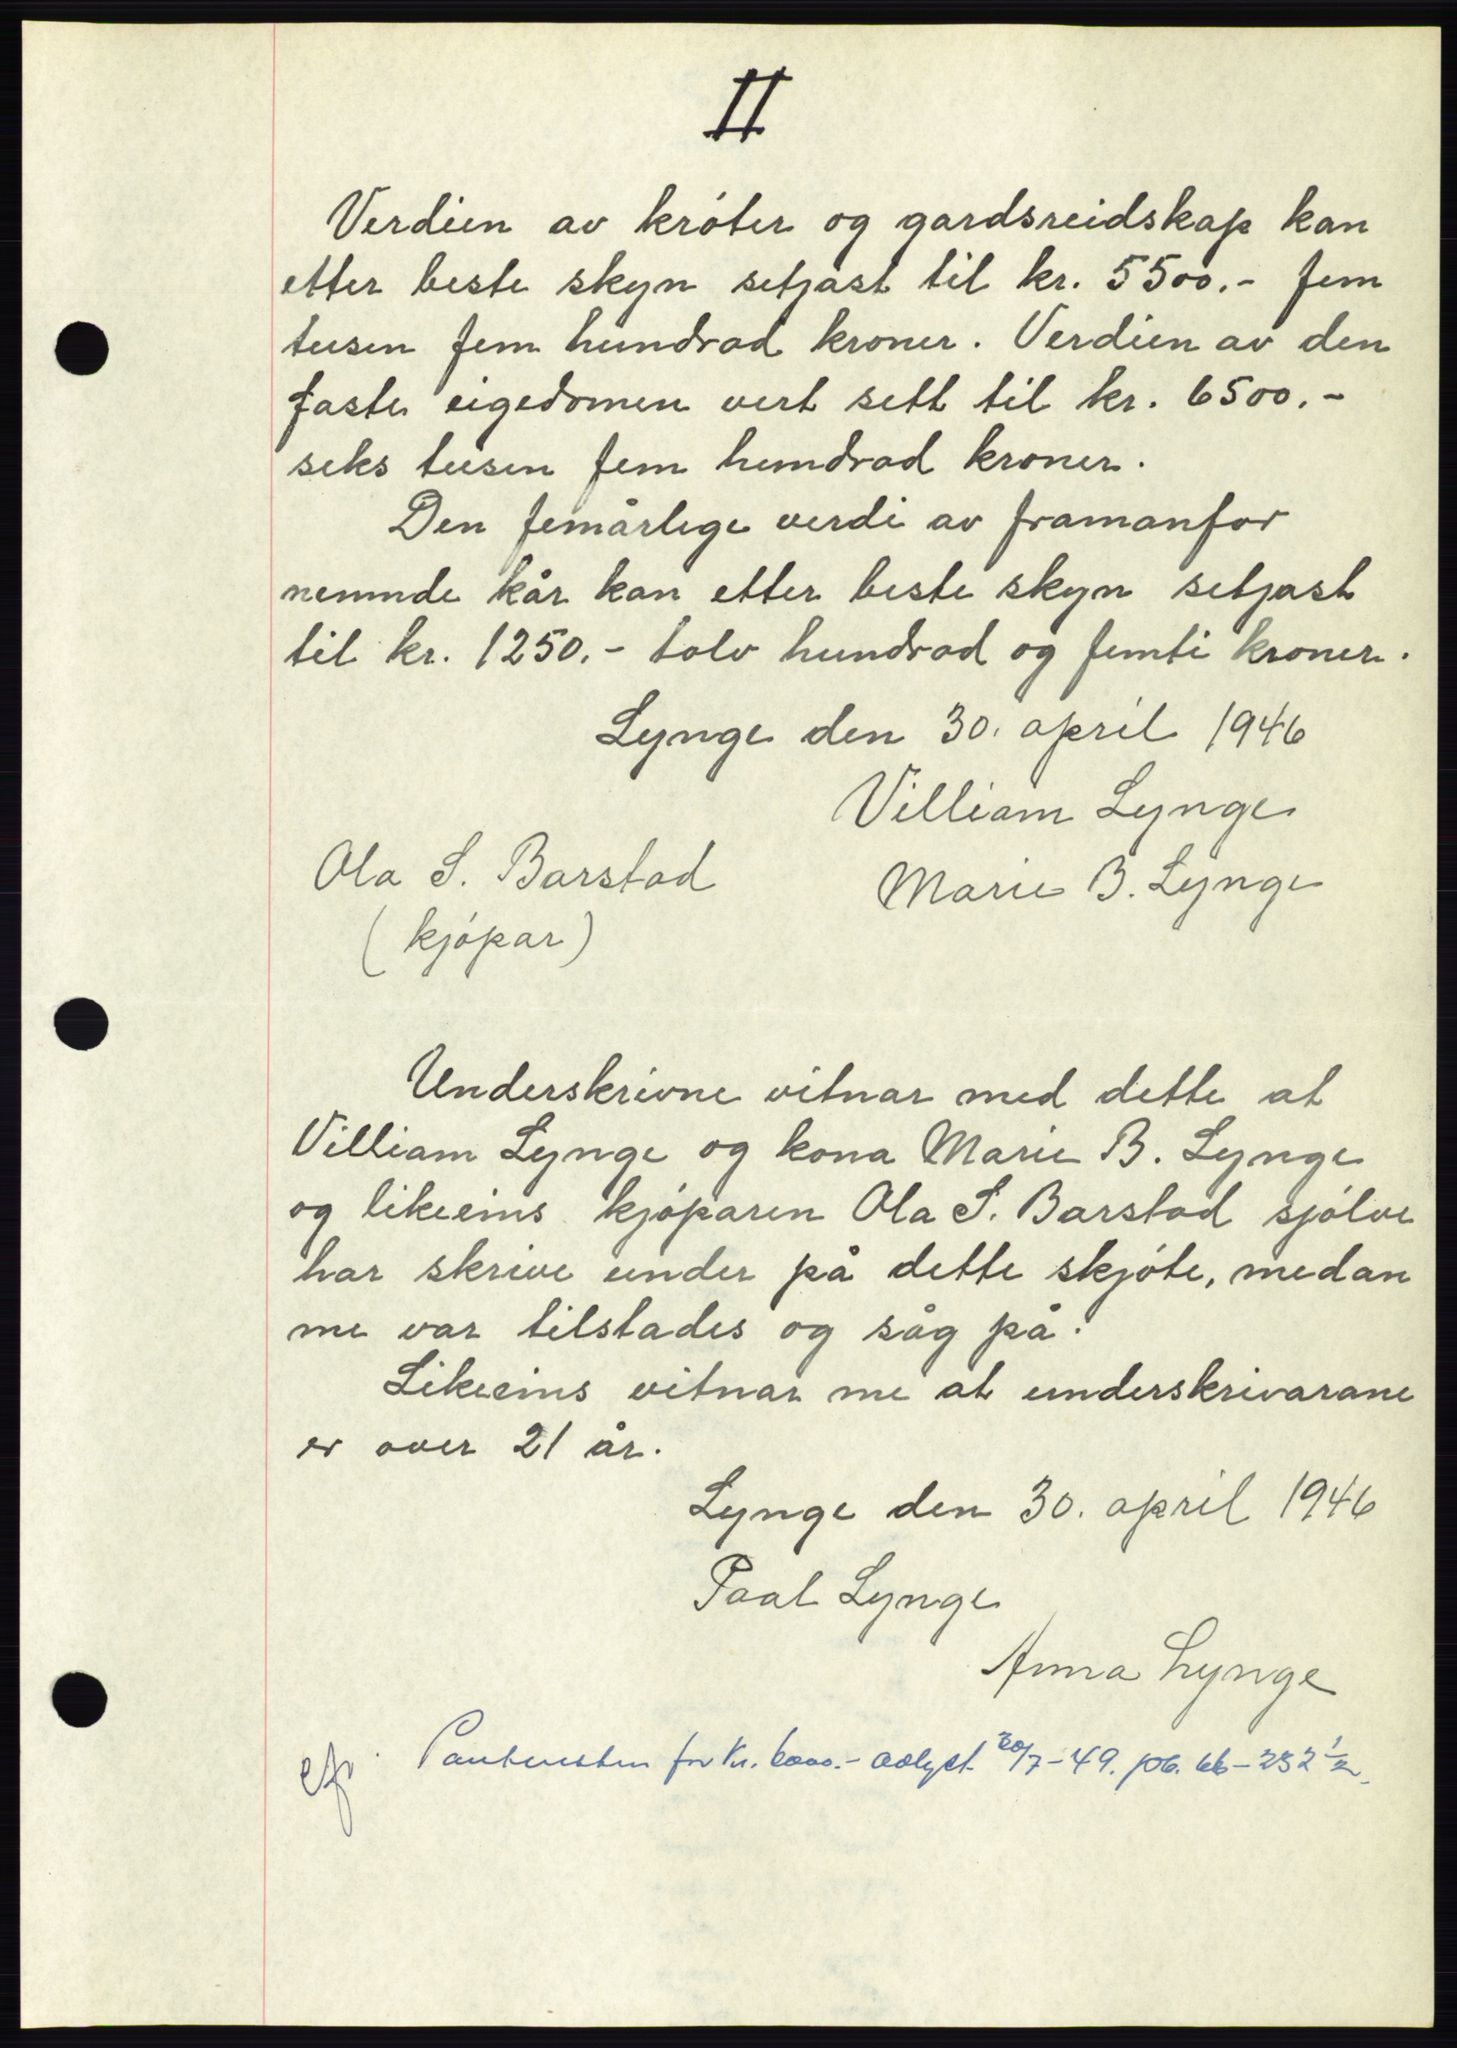 II
Verdien av krøter og gardsreidskap kan
etter beste skyn setjast til kr. 5500.- fem
tusen fem hundrad kroner. Verdien av den
faste eigedomen vert sett til kr. 6500.-
seks tusen fem hundrad kroner.
Den femårlege verdi av framanfor
nemnde kår kan etter beste skyn setjast
til kr. 1250.- tolv hundrad og femti kroner.
Lynge den 30. april 1946
Villiam Lynge
Ola S. Barstad Marie B. Lynge
(kjøpar)
Underskrivne vitnar med dette at
Villiam Lynge og kona Marie B. Lynge
og likeeins kjøparen Ola S. Barstad sjølve
har skrive under på dette skjøte, medan
me var tilstades og såg på.
Likeeins vitnar me at underskrivarane
er over 21 år.
Lynge den 30. april 1946
Paal Lynge
Anna Lynge
for kr. 6000.- avlyst 20/7-49. pb. 66-232 1/2